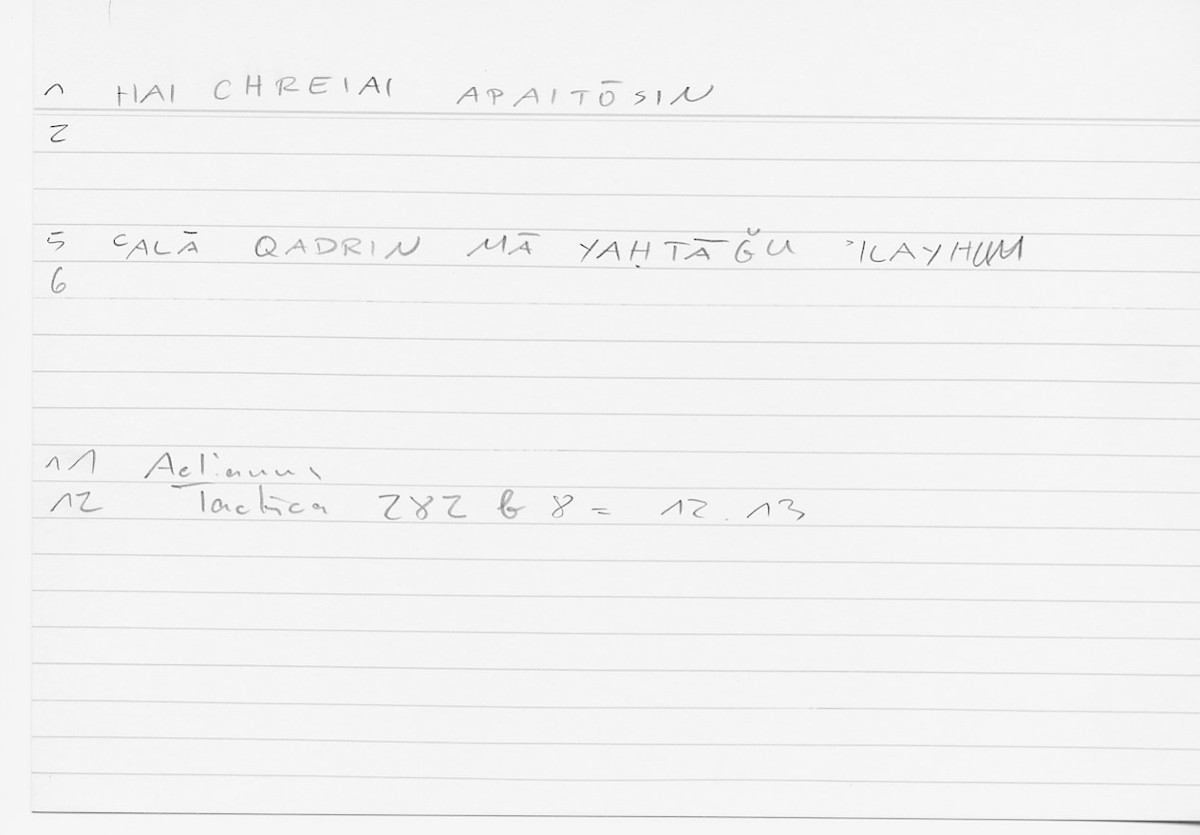 1 HAI CHREIAI APAITŌSIN
2
5 ʿALĀ QADRIN MĀ YAḤTĀǦU ʾILAYHIM
6
11 Aelianus
12 Tactica 282 b 8 = 12.13